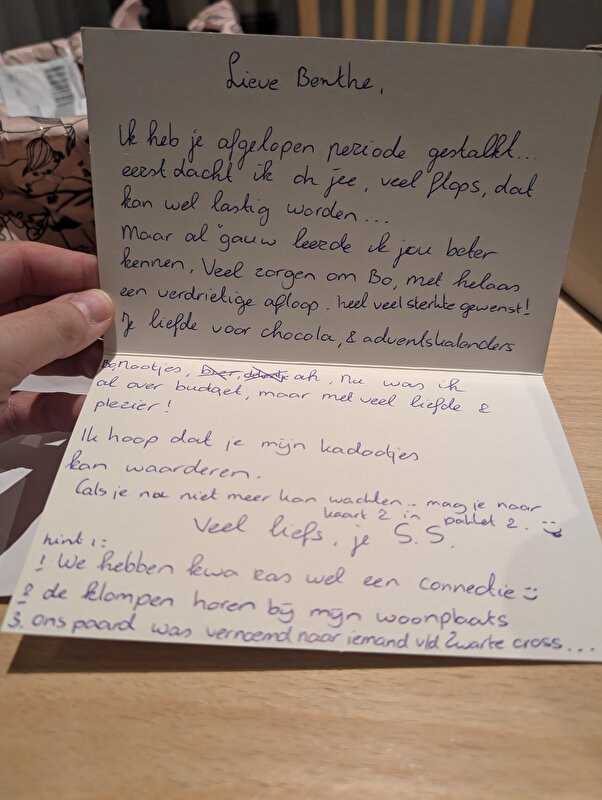 Lieve Benthe,
Ik heb je afgelopen periode gestalkt...
eerst dacht ik oh jee, veel flops, dat
kan wel lastig worden...
Maar al "gauw leerde ik jou beter
kennen. Veel zorgen om Bo, met helaas
een verdrietige afloop. heel veel sterkte gewenst!
Je liefde voor chocola, & adventskalenders
nootjes, ah, nu was ik
al over budget, maar met veel liefde &
plezier!
Ik hoop dat je mijn kadootjes
kan waarderen.
(als je nu niet meer kan wachten.. mag je naar
kaart 2 in pakket 2.
Veel liefs, je S.S.
hint 1:
! We hebben kwa ras wel een connectie
2 de klompen horen bij mijn woonplaats
3. ons paard was vernoemd naar iemand v/d Zwarte cross...